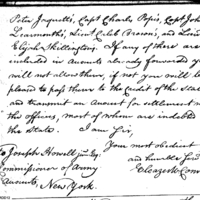 Peter Jaquett's, Capt Charles Pope's, Capt John
Learmonth's, Lieut Caleb Brown's, and Lieut
Elijah Skillington's. If any of these are
included in Accounts already forwarded you
will not allow them, if not you will be
pleased to pass them to the Credit of the State
and transmit an Account for settlement with
the officers, most of whom are indebted
the State. I am Sir,
Your most obedient
and humble Serv
Eleazer McCom
Joseph Howell jun. Esqr.
Commissioner of Army
Accounts,
New York.